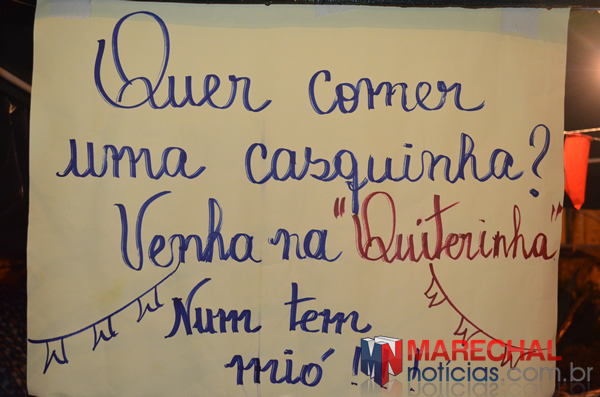 Quer comer
uma casquinha?
Venha na "Quiterinha"
Num tem
mió !!!
MN MARECHAL
notícias.com.br